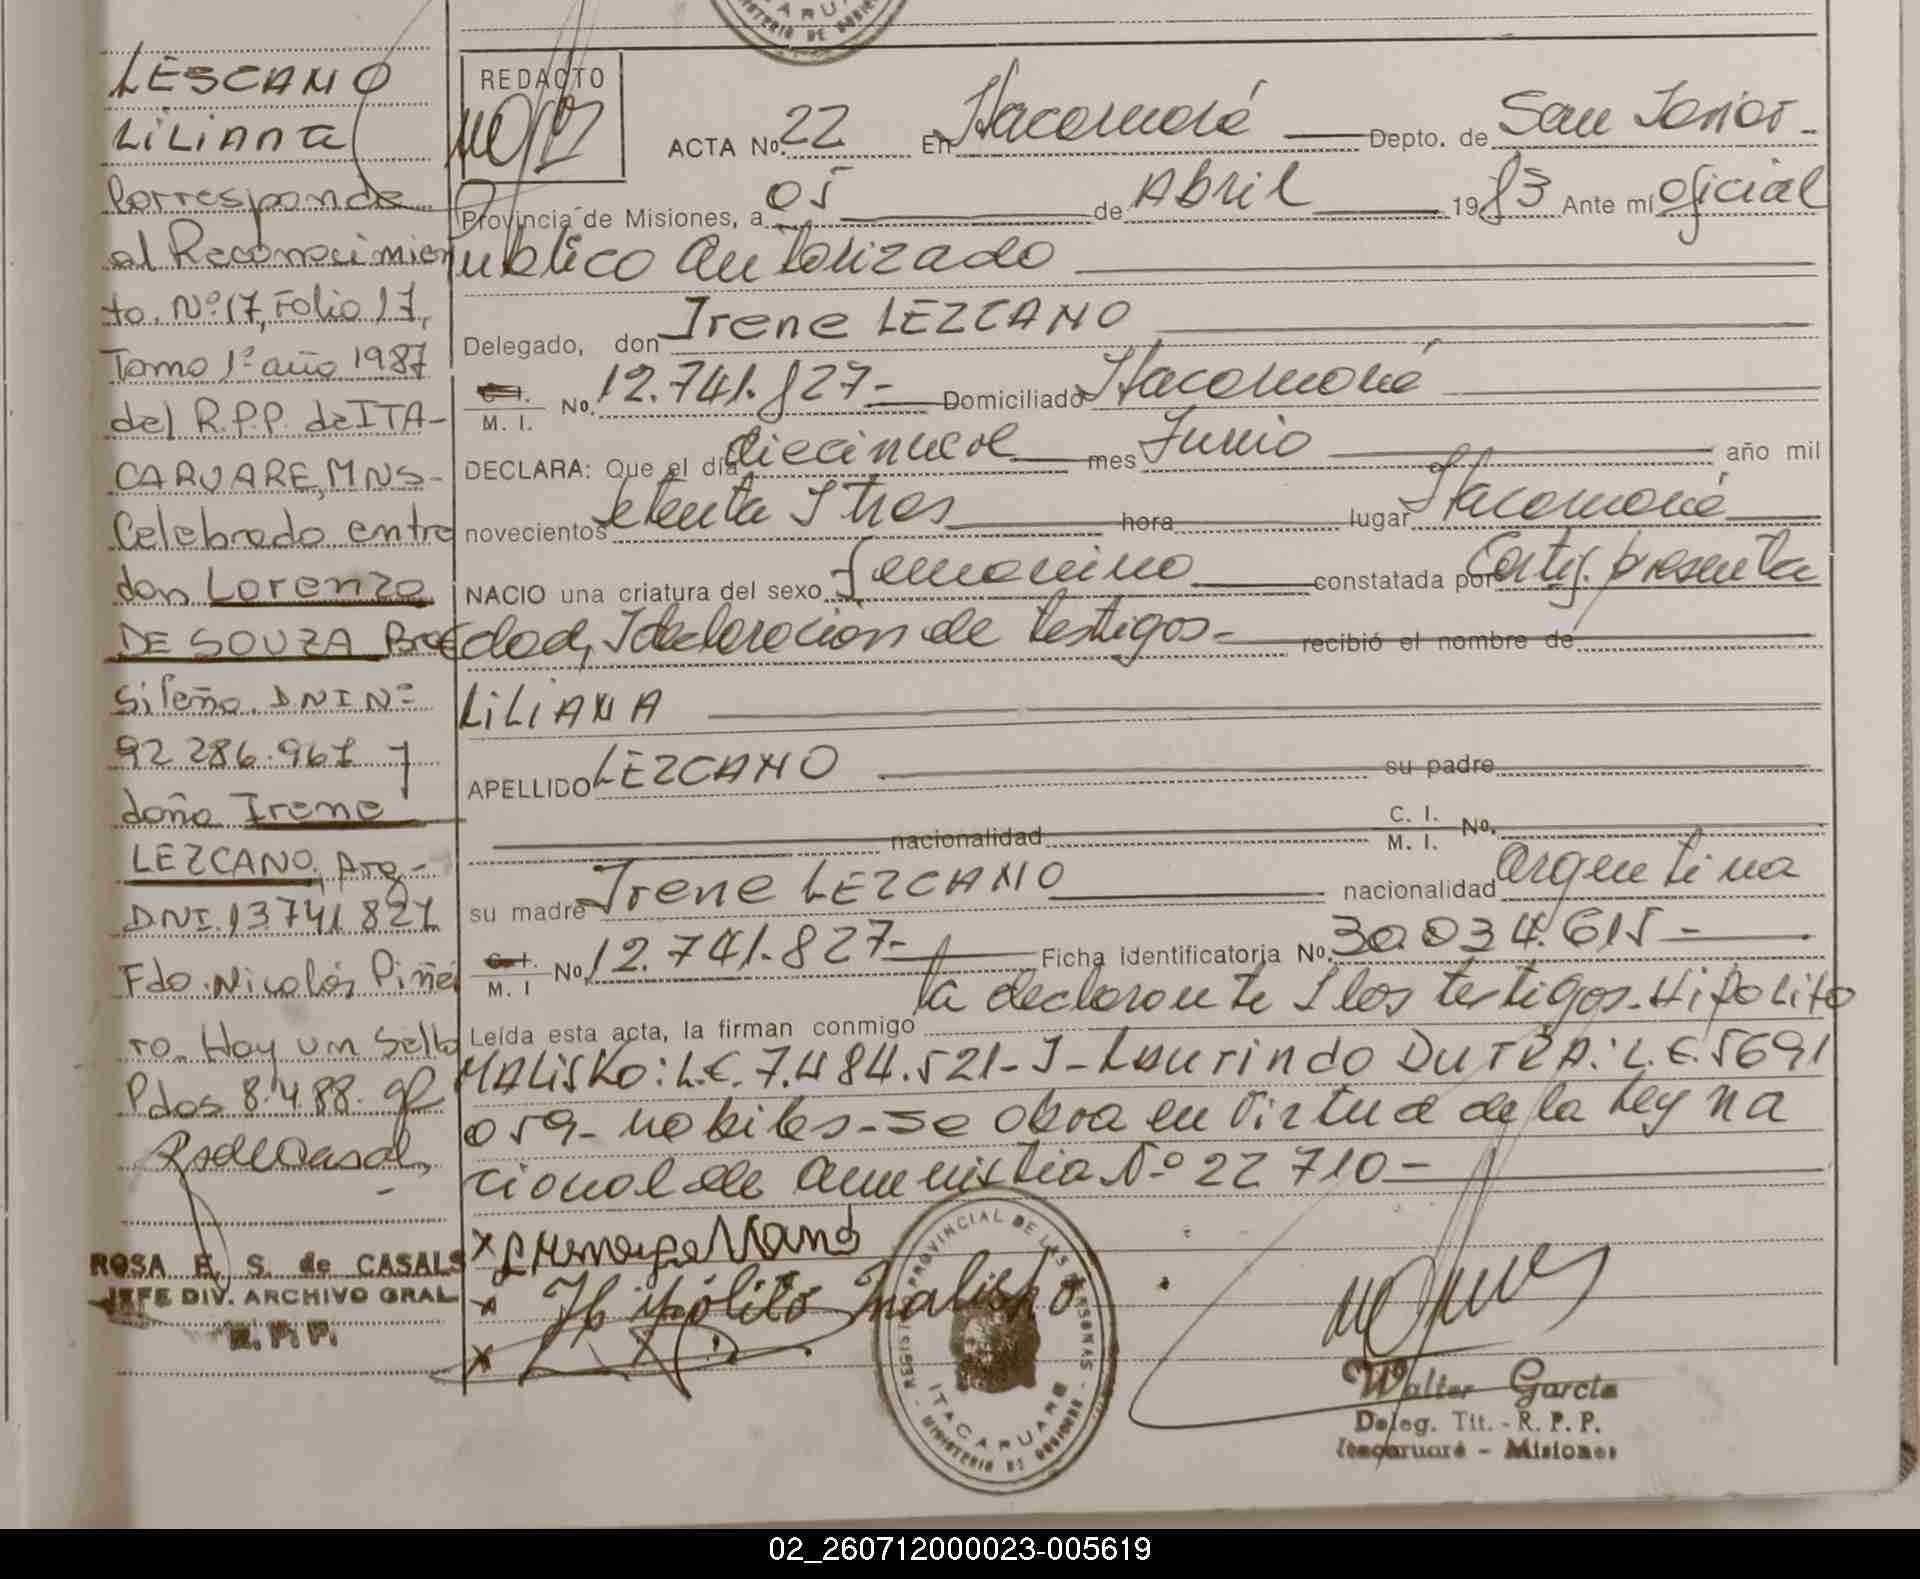 LESCANO
LiLiAna
Corresponde
al Reconocimien
to. Nº 17, Folio 17,
Tomo 1º año 1987
del R.P.P. de ITA-
CARUARE, MNS-
Celebrado entre
don Lorenzo
DE SOUZA Bra
sileño. DNI Nº
92 286.967 y
doña Irene
LEZCANO, Arg-
DNI. 13741827
Fdo. Nicolás Piñei
ro. Hay un Sello
Pdos 8.4.88.
ROSA E. S. de CASALS
JEFE DIV. ARCHIVO GRAL
R. P. P.
MINISTERIO DE GOBIERNO
REDACTO
ACTA No. 22 En Itacaruaré Depto. de San Javier-
Provincia de Misiones, a 05 de Abril 1983 Ante mí oficial
publico autorizado
Delegado, don Irene LEZCANO
C. I.
M. I. No. 12.741.827- Domiciliado Itacaruaré
DECLARA: Que el día diecinueve mes Junio año mil
novecientos setenta I tres hora lugar Itacaruaré
NACIO una criatura del sexo femenino constatada por Certif. presenta
edad, I declaracion de testigos- recibió el nombre de
LiLiANA
APELLIDO LEZCANO su padre
nacionalidad C. I. M. I. No.
su madre Irene LEZCANO nacionalidad argentina
C. I.
M. I No. 12.741.827- Ficha identificatoria No. 30.034.615-
Leída esta acta, la firman conmigo la declarante I los testigos- Hipolito
MALisKo: L.E. 7.484.521- I- Laurindo DuTRA: L.E. 5691
059- habiles- se obra en virtud de la Ley na
cional de amnistia Nº 22 710-
x
x Hipólito Malisko
x
REGISTRO PROVINCIAL DE LAS PERSONAS
ITACARUARE
MINISTERIO DE GOBIERNO
Walter Garcia
Deleg. Tit. - R. P. P.
Itacaruaré - Misiones
02_260712000023-005619